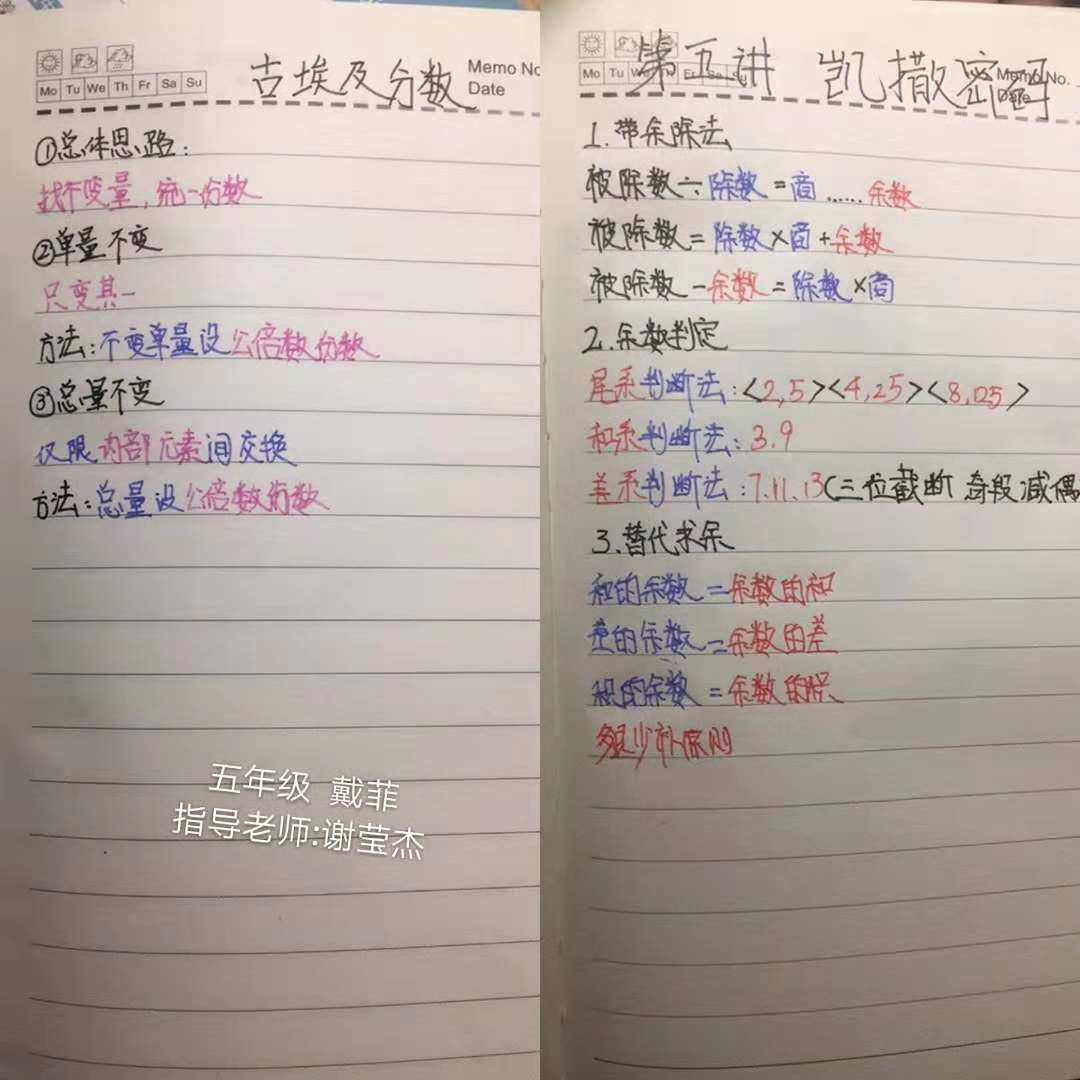 古埃及分数
Memo No
Mo Tu We Th Fr Sa Su
Date
①总体思路:
找不变量,统一份数
②单量不变
只变其一
方法:不变单量设公倍数份数
③总量不变
仅限内部元素间交换
方法:总量设公倍数份数
五年级 戴菲
指导老师:谢莹杰
第五讲 凯撒密码
Mo Tu W Fr Sa
Memo No.
1.带余除法
被除数÷除数=商……余数
被除数=除数×商+余数
被除数-余数=除数×商
2.余数判定
尾系判断法:<2,5><4,25><8,125>
和系判断法:3.9
差系判断法:7.11.13(三位截断 奇段减偶
3.替代求余
和的余数=余数的和
差的余数=余数的差
积的余数=余数的积
多退少补原则